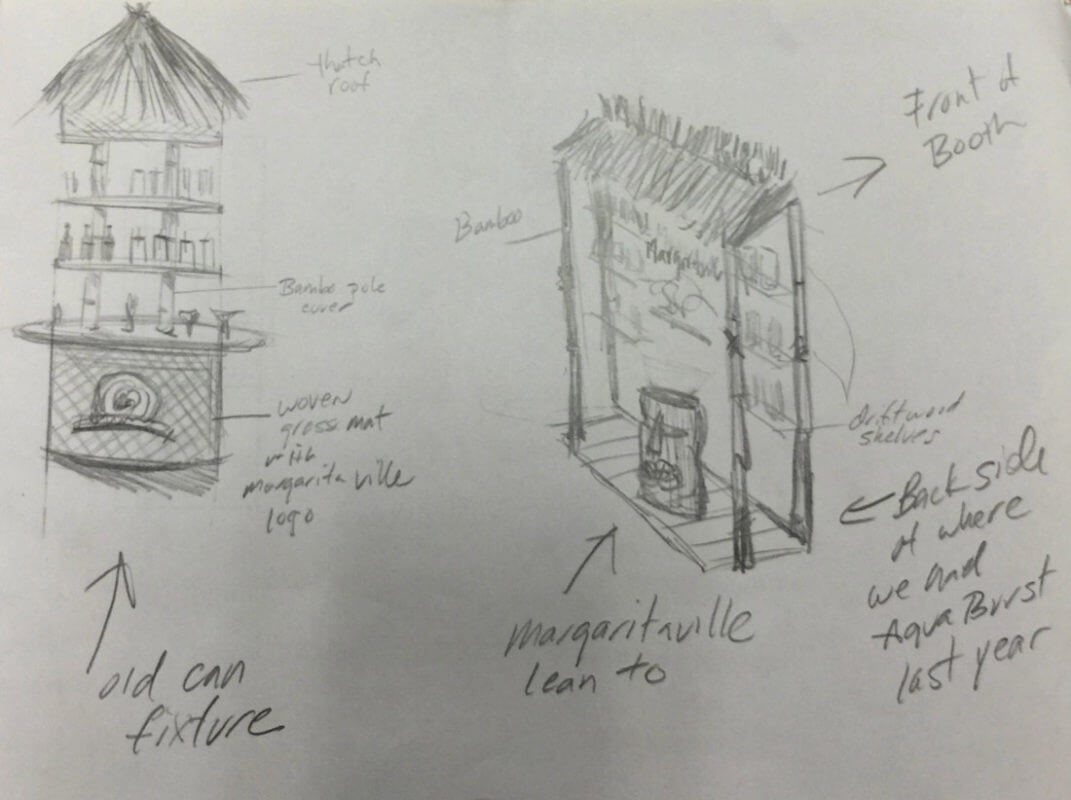 thatch
roof
Bambo pole
cover
woven
grass mat
with
margaritaville
logo
old can
fixture
Bamboo
Margaritaville
driftwood
shelves
margaritaville
lean to
Front of
Booth
Back side
of where
we had
Aqua Burst
last year